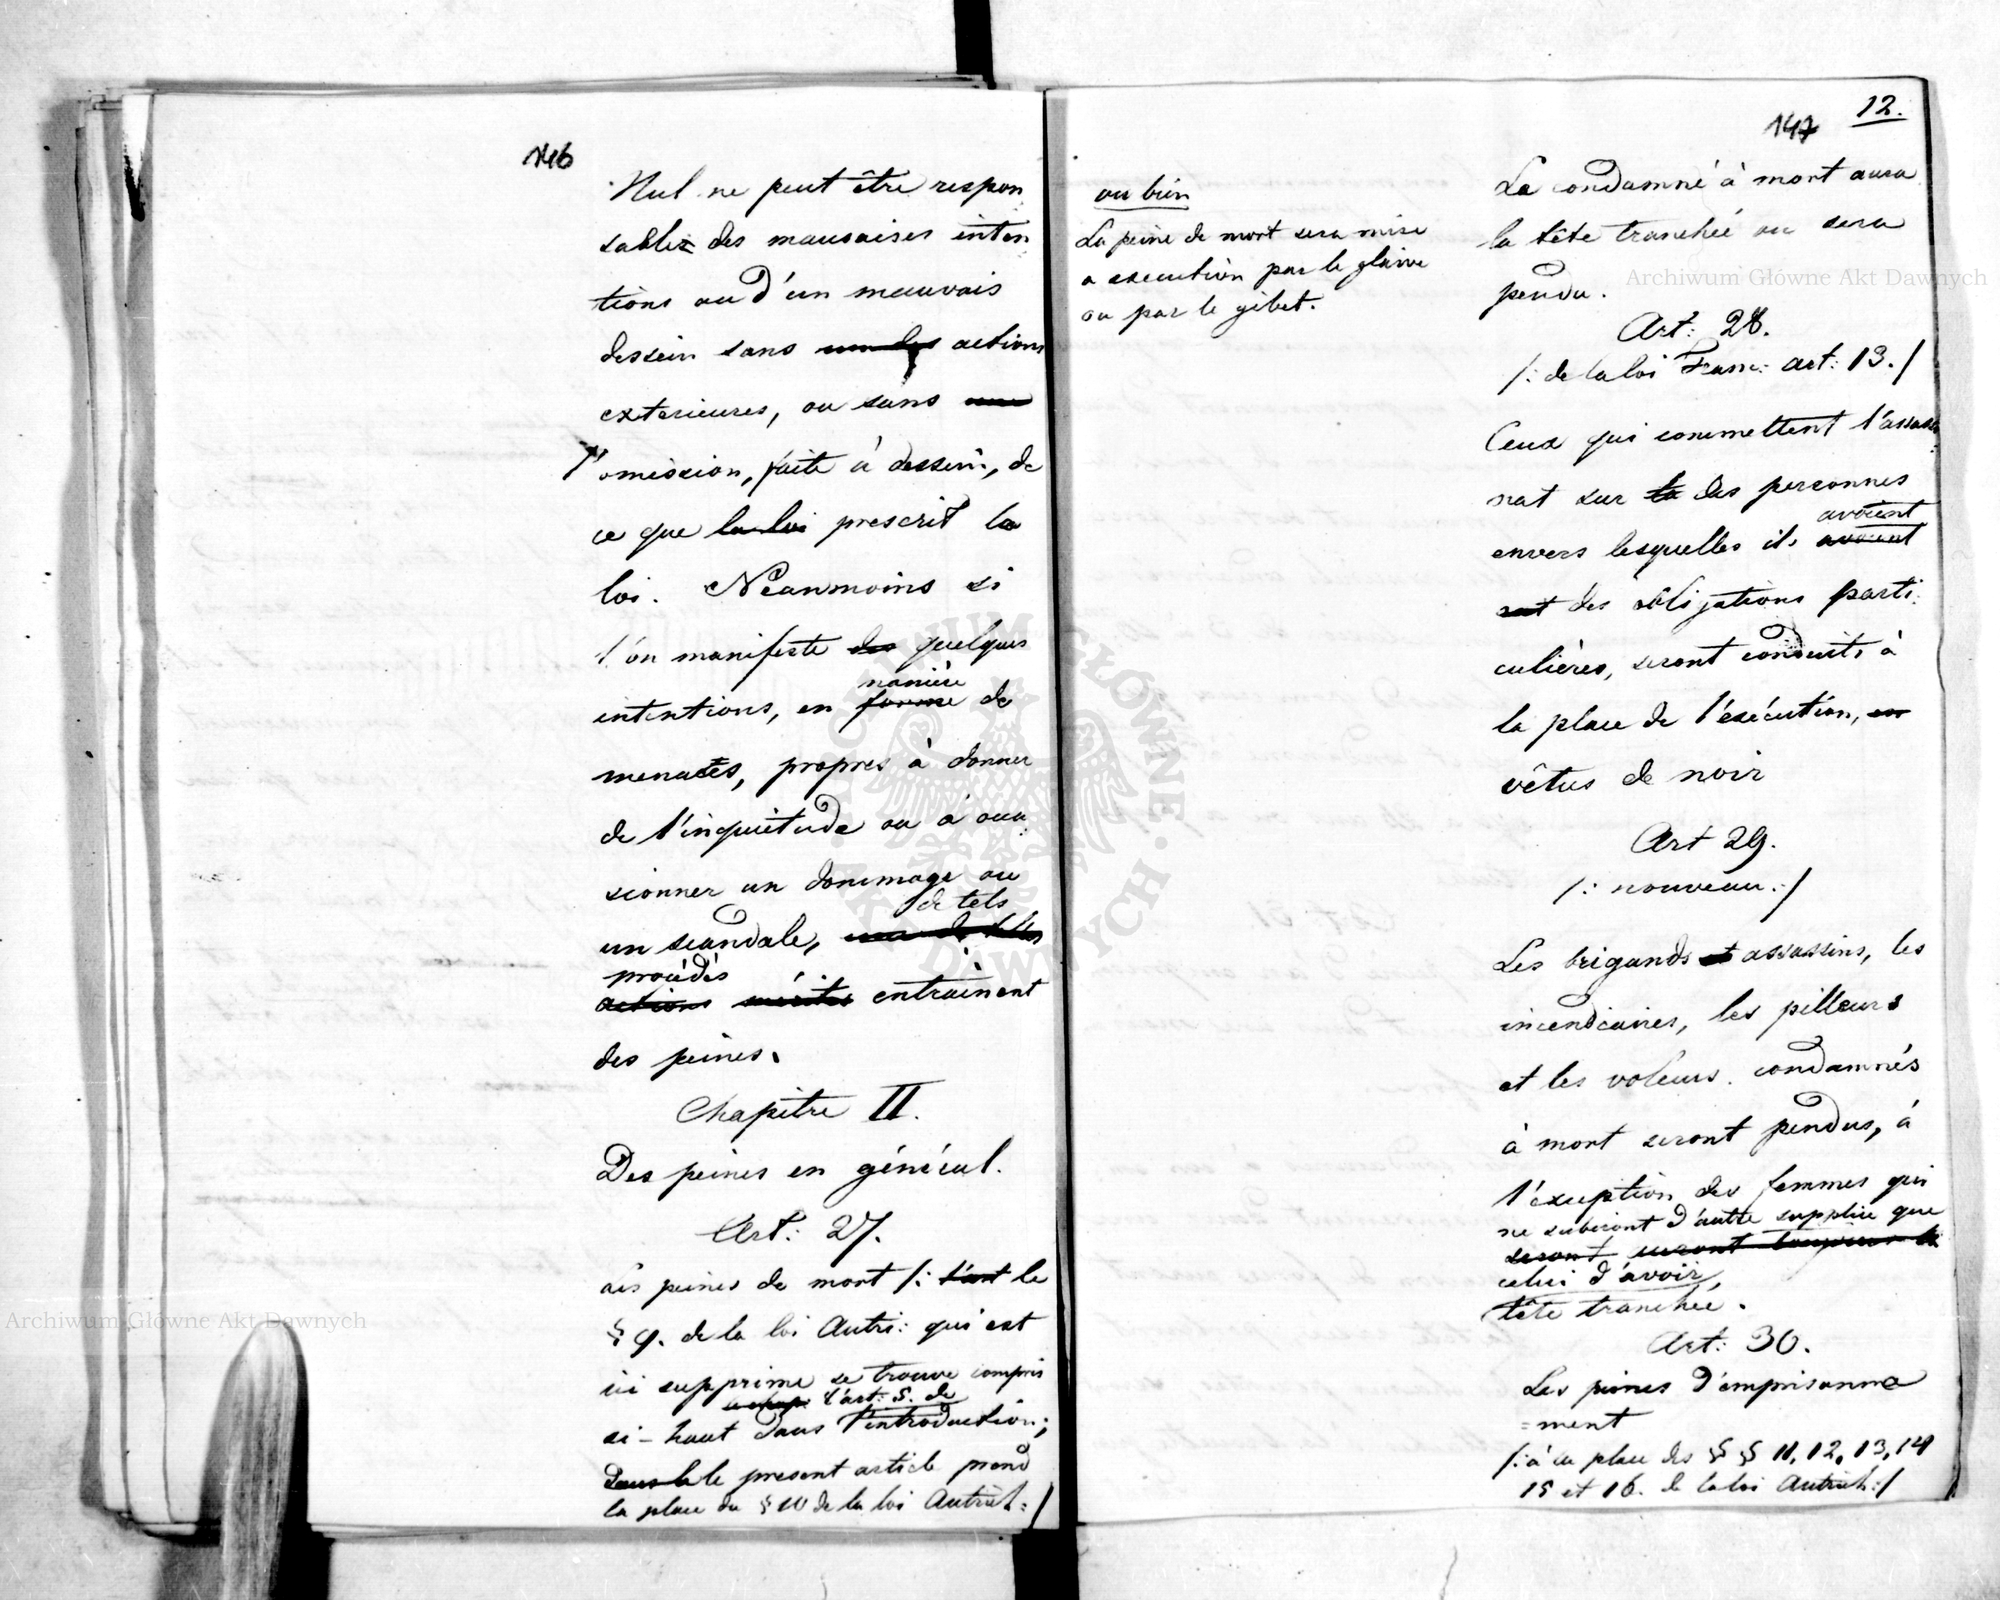 146
Nul ne peut être respon
sable des mauvaises inten
tions ou d'un mauvais
dessein sans actions
exterieures, ou sans une
l'omission, faite à dessein, de
ce que la loi prescrit la
loi. Néanmoins si
l'on manifeste des quelques
manière
intentions, en forme de
menaces, propres à donner
de l'inquietude ou à occa
sionner un dommage ou
de tels
un scandale,
procédés
actions mérites entrainent
des peines.
Chapitre II.
Des peines en général.
Art: 27.
Les peines de mort /: l'art le
§ 9. de la loi Autri: qui est
ici supprime se trouve compris
l'art: 5. de
ci-haut dans l'introduction;
dans le le present article prend
la place du § 10 de la loi Autrich: /
ou bien
La peine de mort sera mise
a execution par le glaive
ou par le gibet.
147
12.
Le condamné à mort aura
la tête tranchée ou sera
pendu.
Art: 28.
/: de la loi Franc: art: 13. /
Ceux qui commettent l'assassi
nat sur la des personnes
avoient
envers lesquelles ils avoient
ont des obligations parti:
culières, seront conduits à
la place de l'exécution, en
vêtus de noir
Art 29.
/: nouveau :/
Les brigands et assassins, les
incendiaires, les pilleurs
et les voleurs condamnés
à mort seront pendus, à
l'exception des femmes qui
ne subiront d'autre supplice que
seront auront toujours la
celui d'avoir,
tête tranchée.
Art: 30.
Les peines d'emprisonne
=ment
/: à la place des § § 11, 12, 13, 14
15 et 16. de la loi Autrich: /
Archiwum Główne Akt Dawnych
Archiwum Główne Akt Dawnych
ARCHIWUM GŁÓWNE AKT DAWNYCH